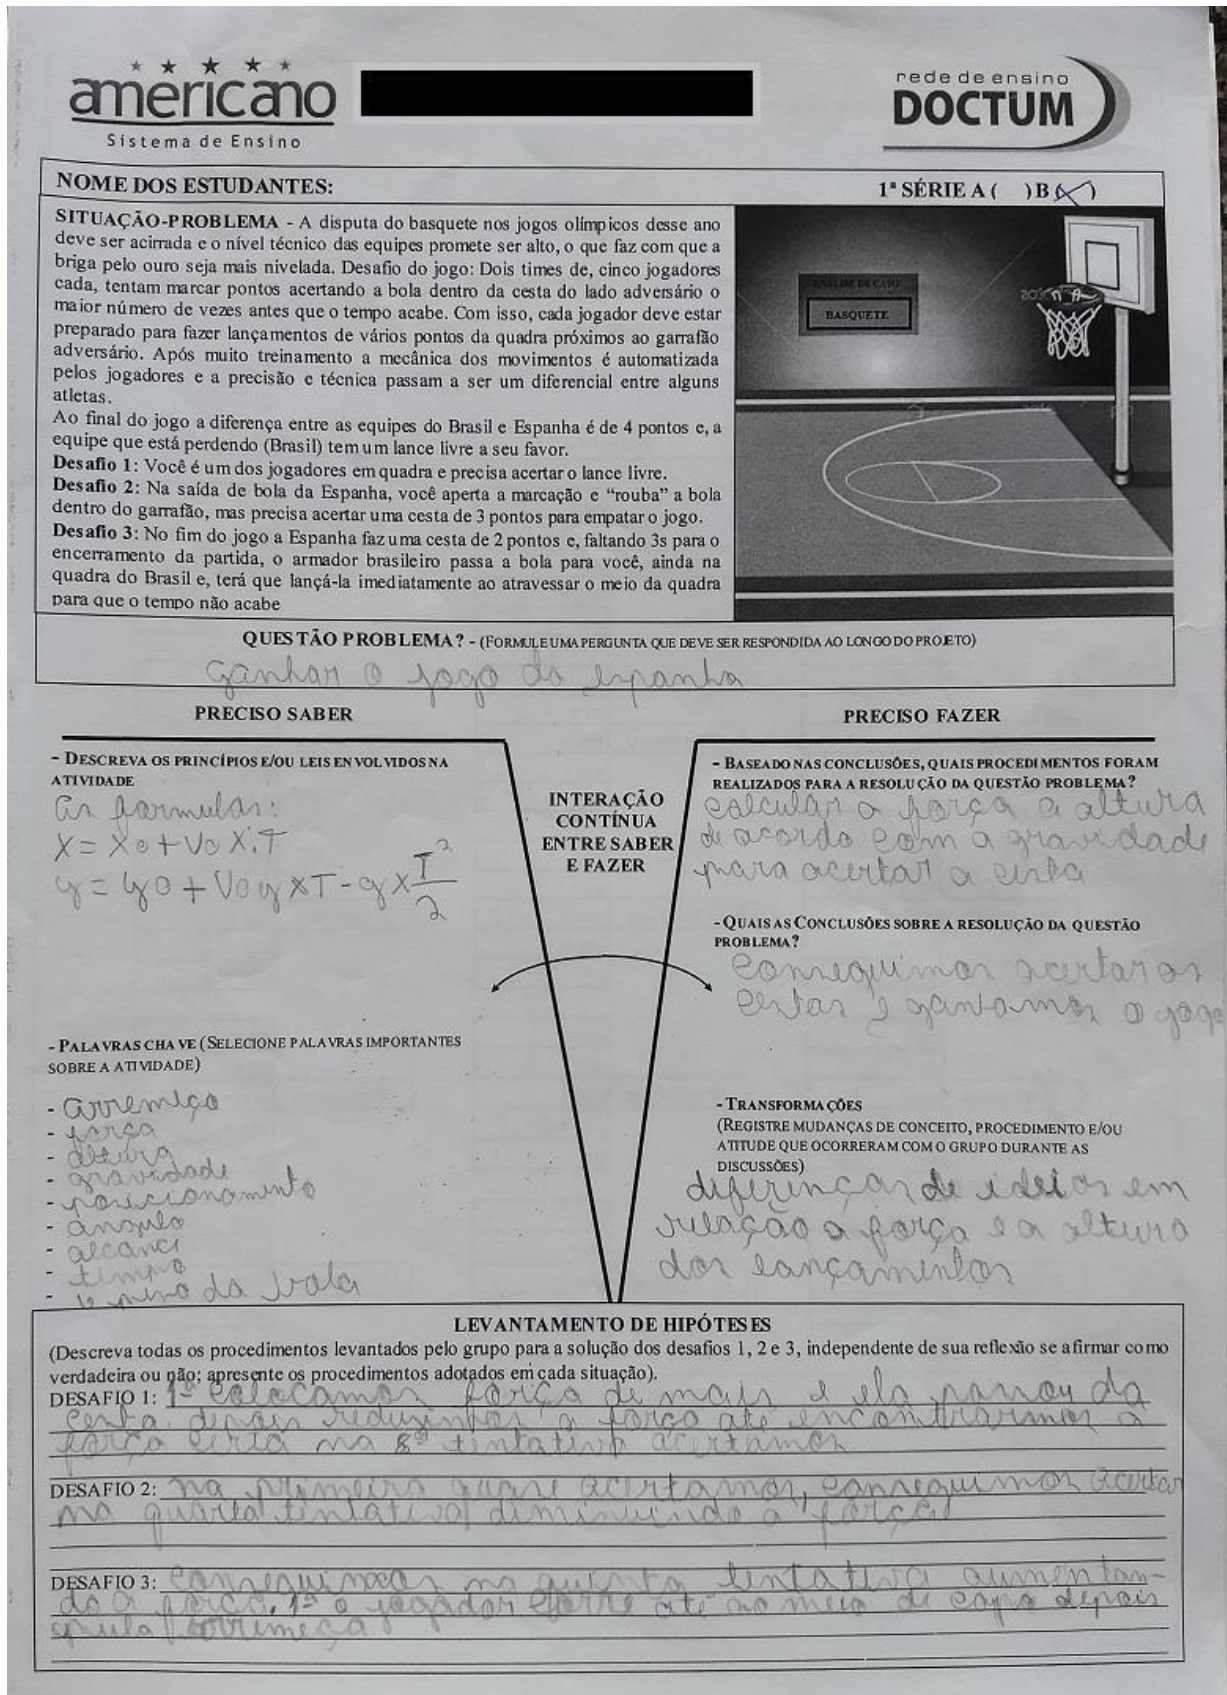 americano
Sistema de Ensino
rede de ensino
DOCTUM
NOME DOS ESTUDANTES:
1ª SÉRIE A ( ) B (X)
SITUAÇÃO-PROBLEMA - A disputa do basquete nos jogos olímpicos desse ano
deve ser acirrada e o nível técnico das equipes promete ser alto, o que faz com que a
briga pelo ouro seja mais nivelada. Desafio do jogo: Dois times de, cinco jogadores
cada, tentam marcar pontos acertando a bola dentro da cesta do lado adversário o
maior número de vezes antes que o tempo acabe. Com isso, cada jogador deve estar
preparado para fazer lançamentos de vários pontos da quadra próximos ao garrafão
adversário. Após muito treinamento a mecânica dos movimentos é automatizada
pelos jogadores e a precisão e técnica passam a ser um diferencial entre alguns
atletas.
Ao final do jogo a diferença entre as equipes do Brasil e Espanha é de 4 pontos e, a
equipe que está perdendo (Brasil) tem um lance livre a seu favor.
Desafio 1: Você é um dos jogadores em quadra e precisa acertar o lance livre.
Desafio 2: Na saída de bola da Espanha, você aperta a marcação e “rouba” a bola
dentro do garrafão, mas precisa acertar uma cesta de 3 pontos para empatar o jogo.
Desafio 3: No fim do jogo a Espanha faz uma cesta de 2 pontos e, faltando 3s para o
encerramento da partida, o armador brasileiro passa a bola para você, ainda na
quadra do Brasil e, terá que lançá-la imediatamente ao atravessar o meio da quadra
para que o tempo não acabe
ANÁLISE DE CASO
BASQUETE
QUESTÃO PROBLEMA? - (FORMULE UMA PERGUNTA QUE DEVE SER RESPONDIDA AO LONGO DO PROJETO)
Ganhar o jogo da espanha
PRECISO SABER
- DESCREVA OS PRINCÍPIOS E/OU LEIS ENVOLVIDOS NA
ATIVIDADE
As formulas:
X = X0 + V0 X.T
y = y0 + V0y x T - g x T²/2
- PALAVRAS CHAVE (SELECIONE PALAVRAS IMPORTANTES
SOBRE A ATIVIDADE)
- arremeço
- força
- altura
- gravidade
- posicionamento
- ângulo
- alcance
- tempo
- da bola
INTERAÇÃO
CONTÍNUA
ENTRE SABER
E FAZER
PRECISO FAZER
- BASEADO NAS CONCLUSÕES, QUAIS PROCEDIMENTOS FORAM
REALIZADOS PARA A RESOLUÇÃO DA QUESTÃO PROBLEMA?
calcular a força a altura
de acordo com a gravidade
para acertar a cesta
- QUAIS AS CONCLUSÕES SOBRE A RESOLUÇÃO DA QUESTÃO
PROBLEMA?
Conseguimos acertar as
cestas e ganhamos o jogo
- TRANSFORMAÇÕES
(REGISTRE MUDANÇAS DE CONCEITO, PROCEDIMENTO E/OU
ATITUDE QUE OCORRERAM COM O GRUPO DURANTE AS
DISCUSSÕES)
diferenças de ideias em
relação a força e a altura
dos lançamentos
LEVANTAMENTO DE HIPÓTESES
(Descreva todas os procedimentos levantados pelo grupo para a solução dos desafios 1, 2 e 3, independente de sua reflexão se afirmar como
verdadeira ou não; apresente os procedimentos adotados em cada situação).
DESAFIO 1: 1º colocamos força de mais e ela passou da
cesta depois reduzimos a força até encontrarmos a
força certa na 8ª tentativa acertamos
DESAFIO 2: na primeira quase acertamos, conseguimos acertar
na quarta tentativa diminuindo a força
DESAFIO 3: Conseguimos na quinta tentativa aumentan-
do a força. 1º o jogador corre até no meio de depois
arrimeça